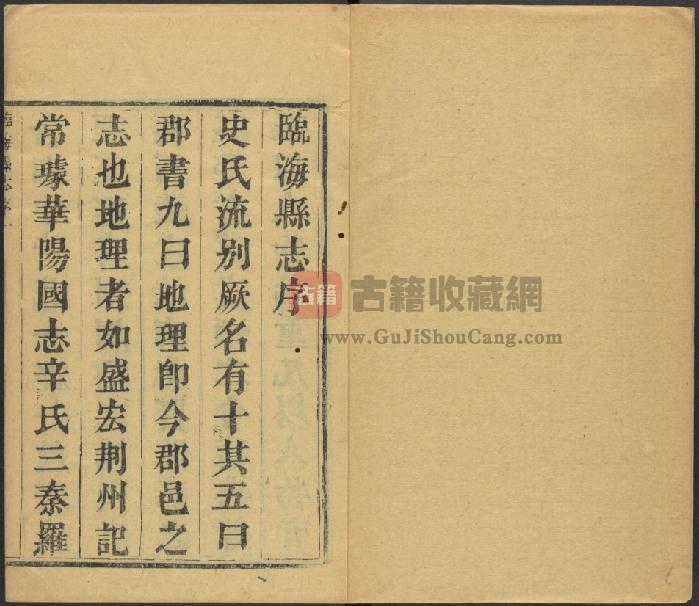 臨海縣志序
史氏流别厥名有十其五曰
郡書九曰地理卽今郡邑之
志也地理者如盛宏荆州記
常璩華陽國志辛氏三秦羅
古籍 古籍收藏網
www.GuJiShouCang.com